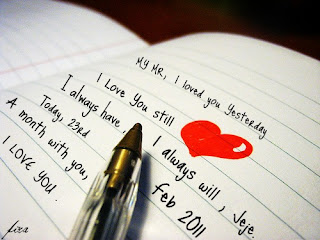 My MR, I loved you Yesterday
I Love You still
I always have, I always will, Jeje
Today, 23rd Feb 2011
A month with you,
I LOVE YOU.